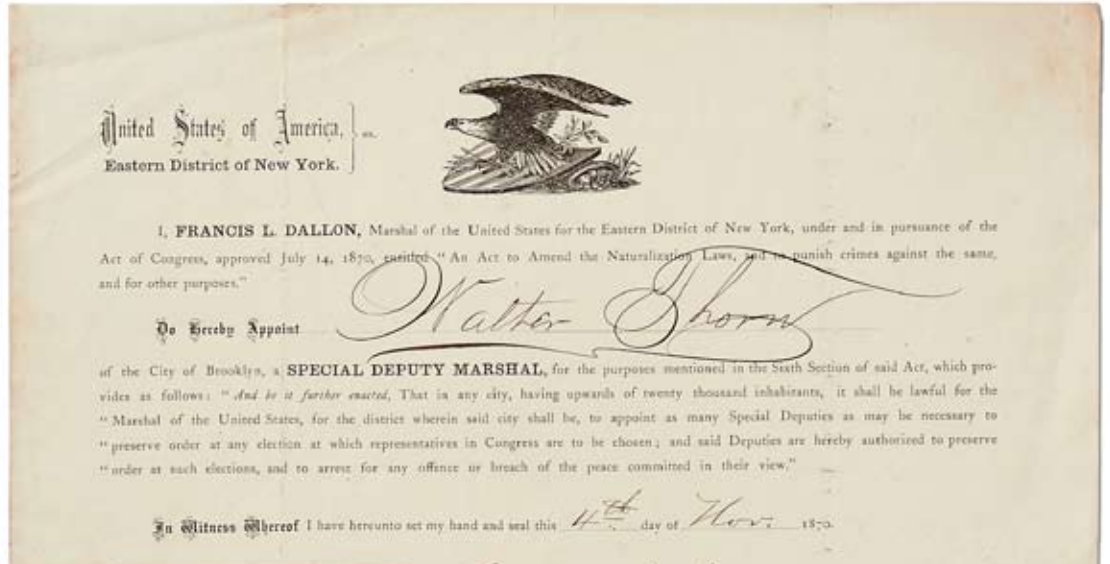 United States of America, } ss.
Eastern District of New York.
I, FRANCIS L. DALLON, Marshal of the United States for the Eastern District of New York, under and in pursuance of the
Act of Congress, approved July 14, 1870, entitled "An Act to Amend the Naturalization Laws, and to punish crimes against the same,
and for other purposes."
Do Hereby Appoint Walter Thorn
of the City of Brooklyn, a SPECIAL DEPUTY MARSHAL, for the purposes mentioned in the Sixth Section of said Act, which pro-
vides as follows: "And be it further enacted, That in any city, having upwards of twenty thousand inhabitants, it shall be lawful for the
"Marshal of the United States, for the district wherein said city shall be, to appoint as many Special Deputies as may be necessary to
"preserve order at any election at which representatives in Congress are to be chosen; and said Deputies are hereby authorized to preserve
"order at such elections, and to arrest for any offence or breach of the peace committed in their view."
In Witness Whereof I have hereunto set my hand and seal this 4th day of Nov. 1870.